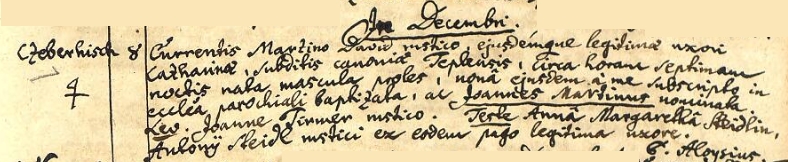 In Decembri.
Czeberhisch 8 Currentis Martino David rustico, ejusdémque legitimæ uxori
Catharinæ, subditis canoniæ Teplensis, circa horam septimam
noctis nata mascula proles, nonâ ejusdem à me subscripto in
4 eccleâ parochiali baptizata, ac Joannes Martinus nominata.
Lev. Joanne Tirmer rustico. Teste Annâ Margarethâ Steidlin,
Antonÿ Steidl rustici ex eodem pago legitima uxore.
P. Aloysius